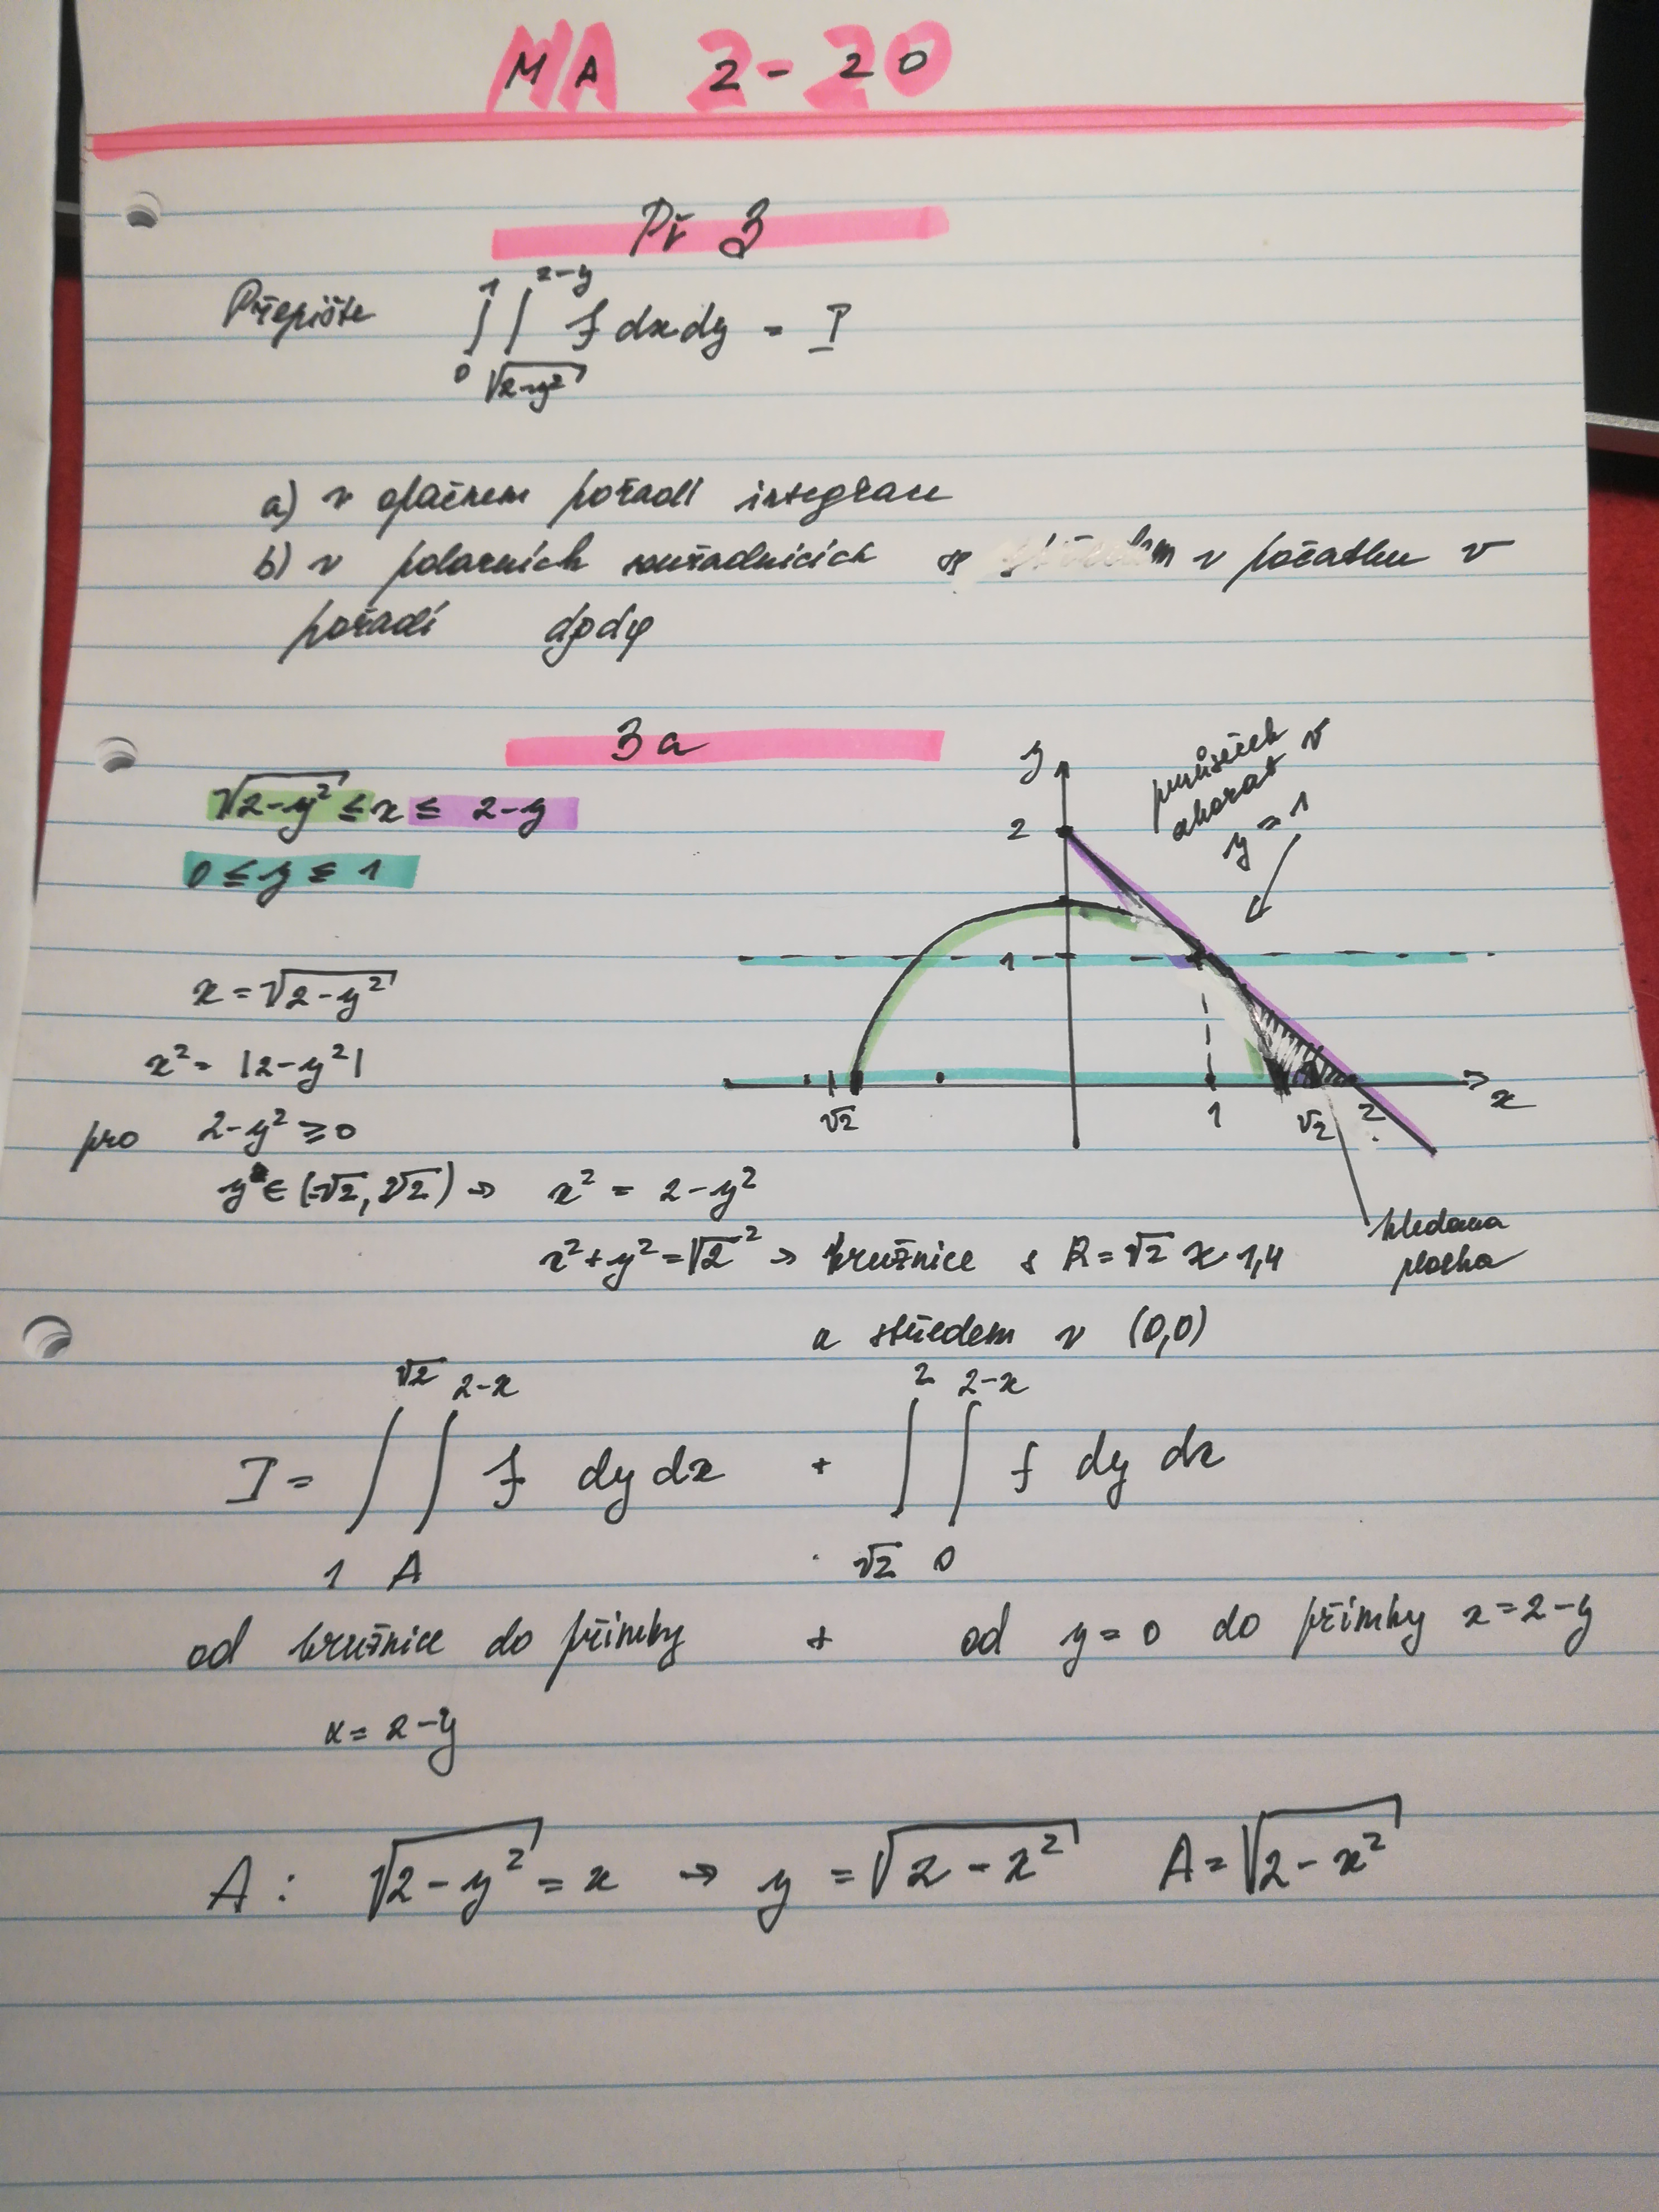 MA 2-20
Př 3
Přepište ∫₀¹ ∫_{√(2-y²)}^{2-y} f dx dy = I
a) v opačnem pořadí integrace
b) v polarních souřadnicích se v počátku v
pořadí dρdφ
3a
√(2-y²) ≤ x ≤ 2-y
0 ≤ y ≤ 1
x = √(2-y²)
x² = |2-y²|
pro 2-y² ≥ 0
x² = 2-y²
x² + y² = √2² → kružnice s R = √2 ≈ 1,4
a středem v (0,0)
y
2
průsečík
akorat v
y = 1
1
√2
1
√2
2
x
hledana
plocha
I = ∫₁^{√2} ∫_A^{2-x} f dy dx + ∫_{√2}² ∫₀^{2-x} f dy dx
od kružnice do přímky + od y = 0 do přímky x = 2-y
x = 2-y
A: √(2-y²) = x → y = √(2-x²) A = √(2-x²)